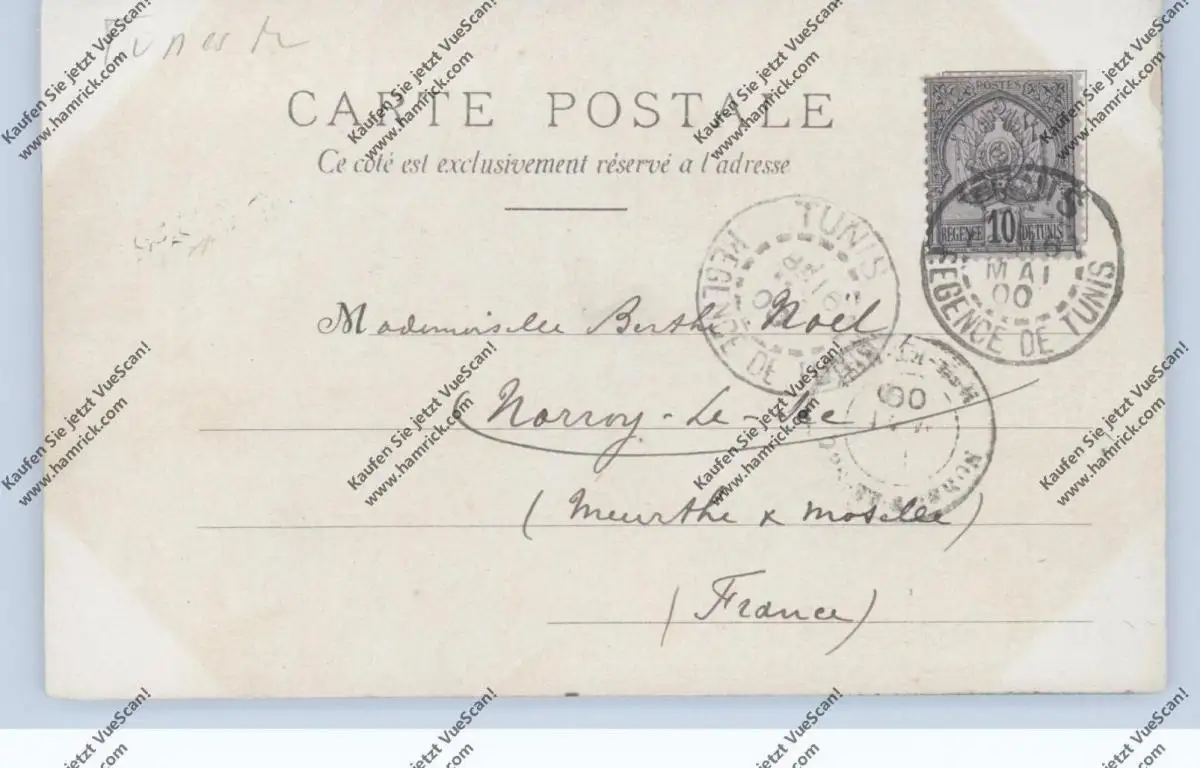 CARTE POSTALE
Ce côté est exclusivement réservé a l'adresse
POSTES
REGENCE 10 DE TUNIS
TUNIS
MAI
00
REGENCE DE TUNIS
TUNIS
REGENCE DE TUNIS
Mademoiselle Berthe Noël
Norroy-le-Sec
00
(Meurthe & Moselle)
(France)
Kaufen Sie jetzt VueScan!
www.hamrick.com